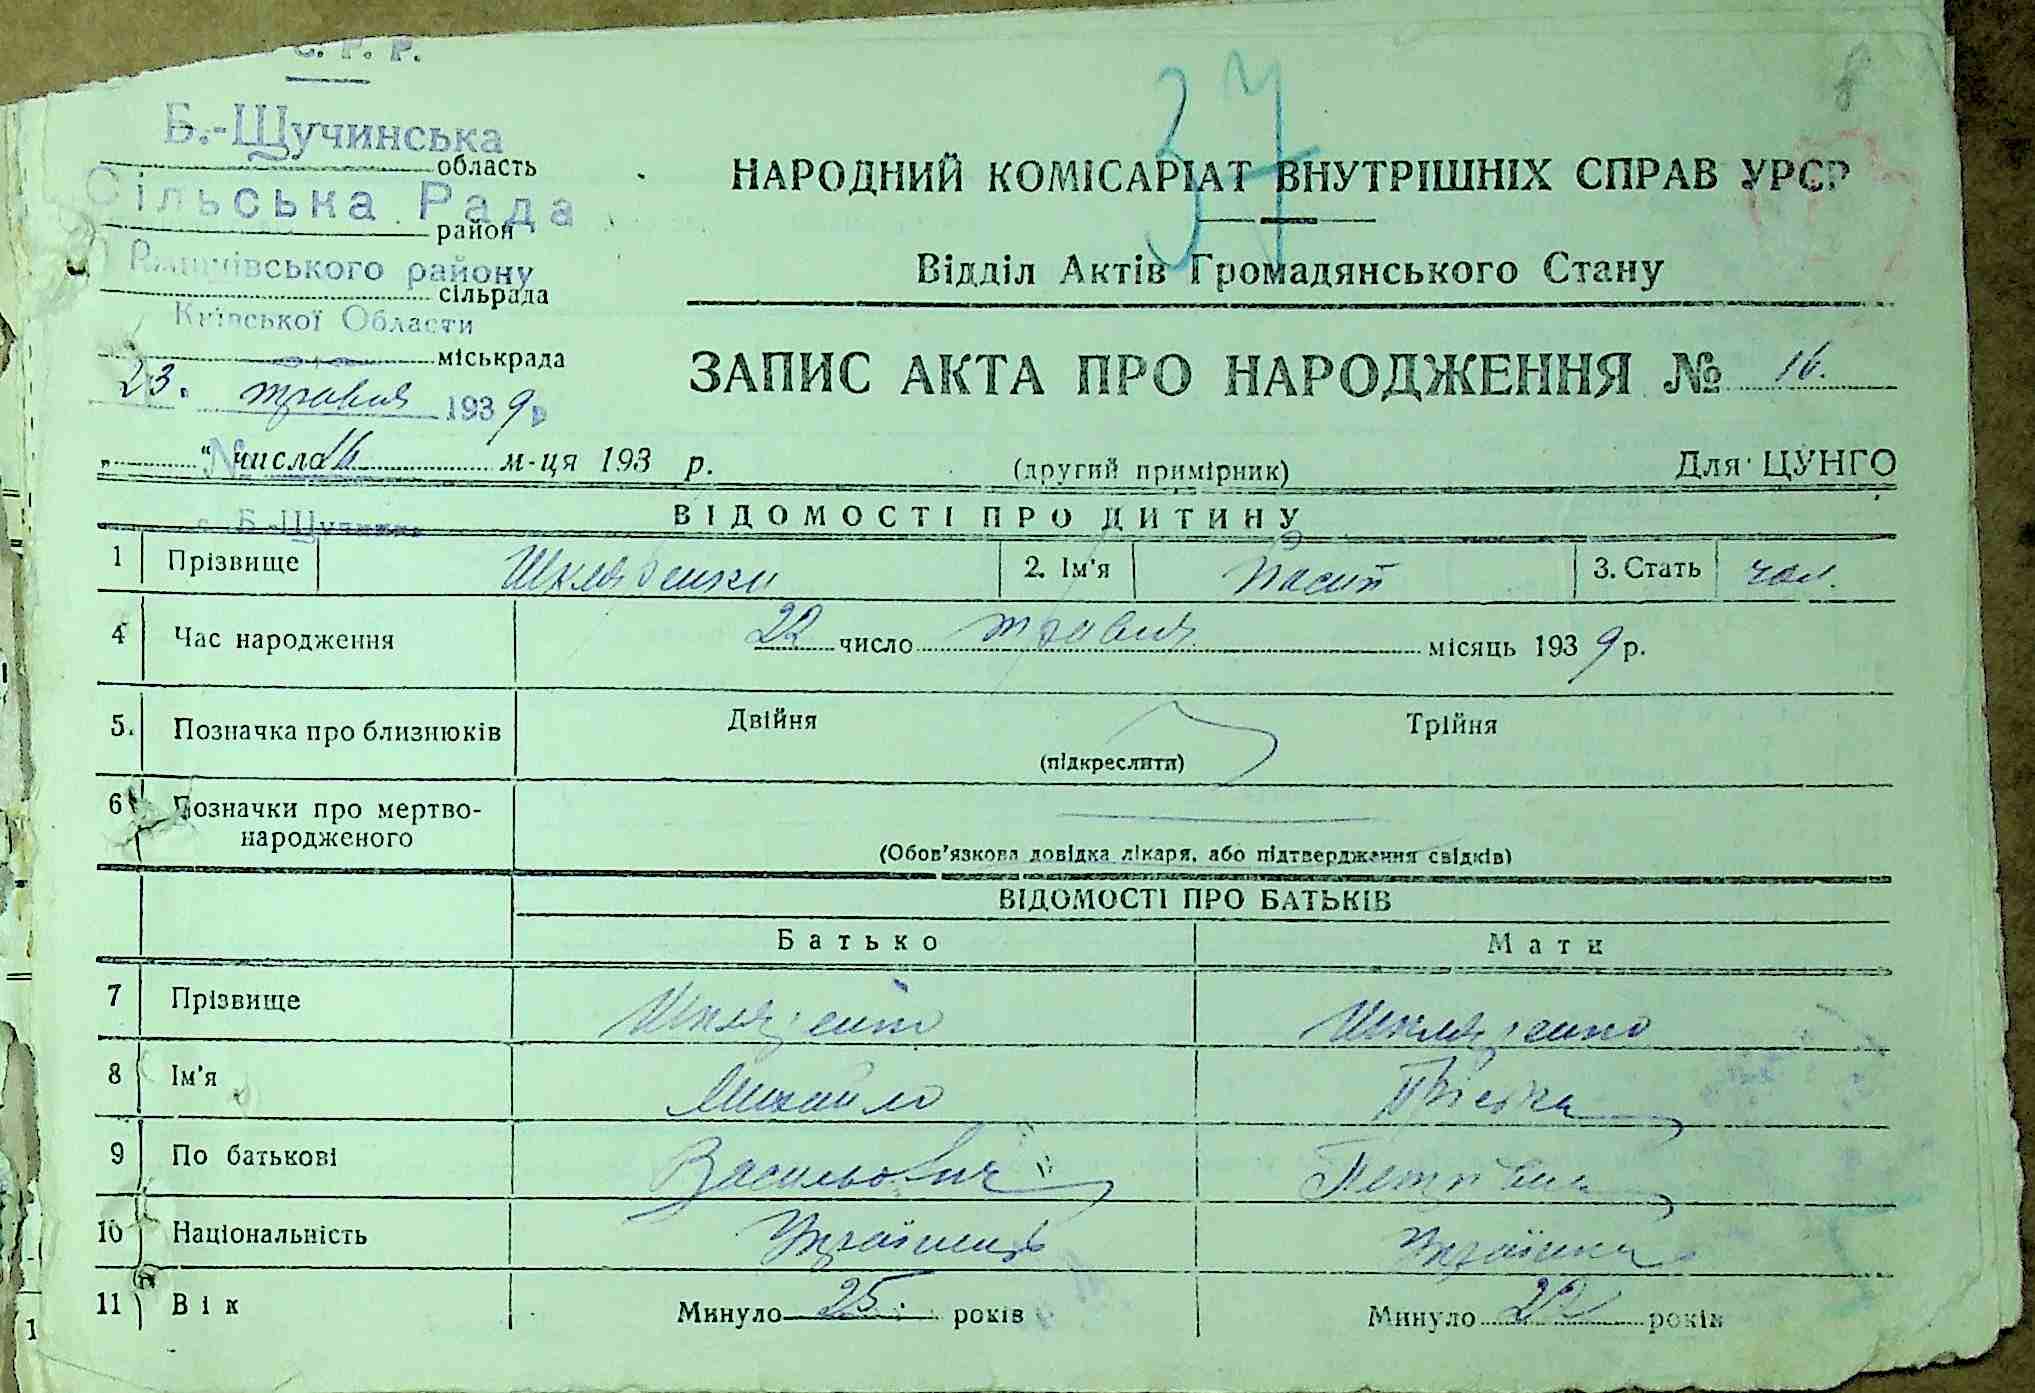 С. Р. Р.
Б.-Щучинська
область
Сільська Рада
район
Ржищівського району
сільрада
Київської Області
міськрада
23. травня 1939 р
№ 16
„ “ числа м-ця 193 р.
с. Б-Щучинка
37
НАРОДНИЙ КОМІСАРІАТ ВНУТРІШНІХ СПРАВ УРСР
Відділ Актів Громадянського Стану
ЗАПИС АКТА ПРО НАРОДЖЕННЯ № 16.
(другий примірник) Для ЦУНГО
ВІДОМОСТІ ПРО ДИТИНУ
1 Прізвище 2. Ім'я 3. Стать чол.
4 Час народження 22 число травня місяць 1939 р.
5. Позначка про близнюків Двійня Трійня
(підкреслити)
6 Позначки про мертво-
народженого
(Обов'язкова довідка лікаря, або підтвердження свідків)
ВІДОМОСТІ ПРО БАТЬКІВ
Батько Мати
7 Прізвище Шкляренко Шкляренко
8 Ім'я Михайло
9 По батькові Васильович Петрівна
10 Національність Українець Українка
11 Вік Минуло 25 років Минуло 22 років